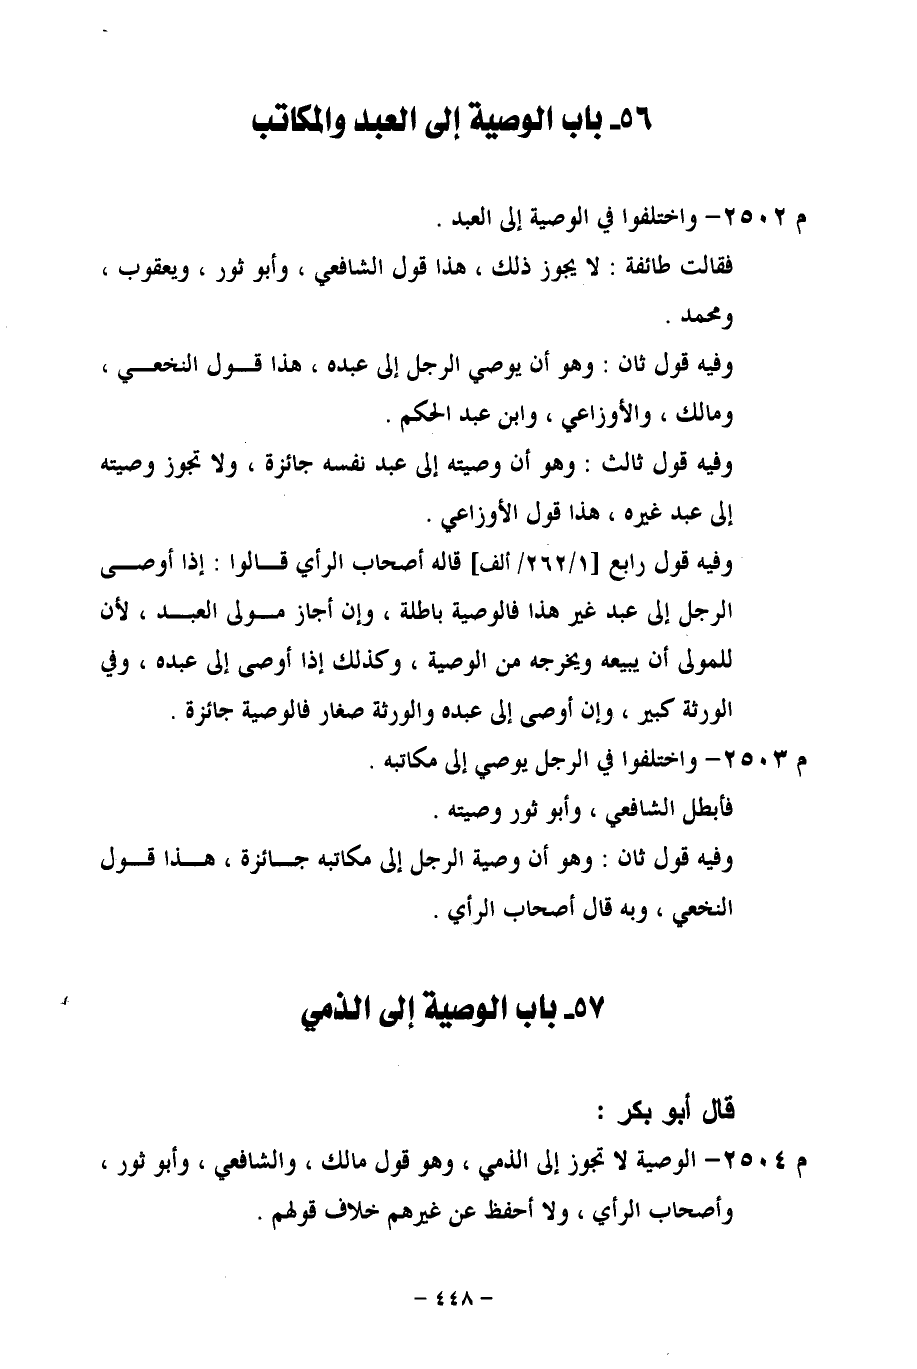 ٥٦ـ باب الوصية إلى العبد والمكاتب
م ٢٥٠٢– واختلفوا في الوصية إلى العبد .
فقالت طائفة : لا يجوز ذلك ، هذا قول الشافعي ، وأبو ثور ، ويعقوب ،
ومحمد .
وفيه قول ثان : وهو أن يوصي الرجل إلى عبده ، هذا قـول النخعـي ،
ومالك ، والأوزاعي ، وابن عبد الحكم .
وفيه قول ثالث : وهو أن وصيته إلى عبد نفسه جائزة ، ولا تجوز وصيته
إلى عبد غيره ، هذا قول الأوزاعي .
وفيه قول رابع [٢٦٢/١/ ألف] قاله أصحاب الرأي قـالوا : إذا أوصـى
الرجل إلى عبد غير هذا فالوصية باطلة ، وإن أجاز مـولى العبـد ، لأن
للمولى أن يبيعه ويخرجه من الوصية ، وكذلك إذا أوصى إلى عبده ، وفي
الورثة كبير ، وإن أوصى إلى عبده والورثة صغار فالوصية جائزة .
م ٢٥٠٣– واختلفوا في الرجل يوصي إلى مكاتبه .
فأبطل الشافعي ، وأبو ثور وصيته .
وفيه قول ثان : وهو أن وصية الرجل إلى مكاتبه جـائزة ، هـذا قـول
النخعي ، وبه قال أصحاب الرأي .
٥٧ـ باب الوصية إلى الذمي
قال أبو بكر :
م ٢٥٠٤– الوصية لا تجوز إلى الذمي ، وهو قول مالك ، والشافعي ، وأبو ثور ،
وأصحاب الرأي ، ولا أحفظ عن غيرهم خلاف قولهم .
– ٤٤٨ –